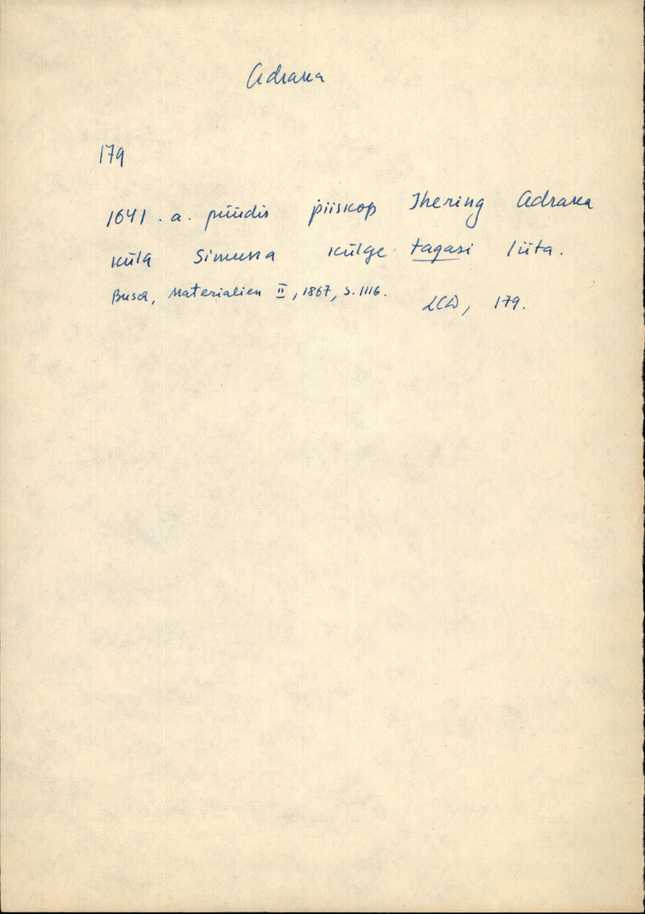 Adraka
179
1641. a. püüdis piiskop Jhering Adraka
küla Simuna külge tagasi liita.
Busch, Materialien II, 1867, S. 1116.
LCD, 179.